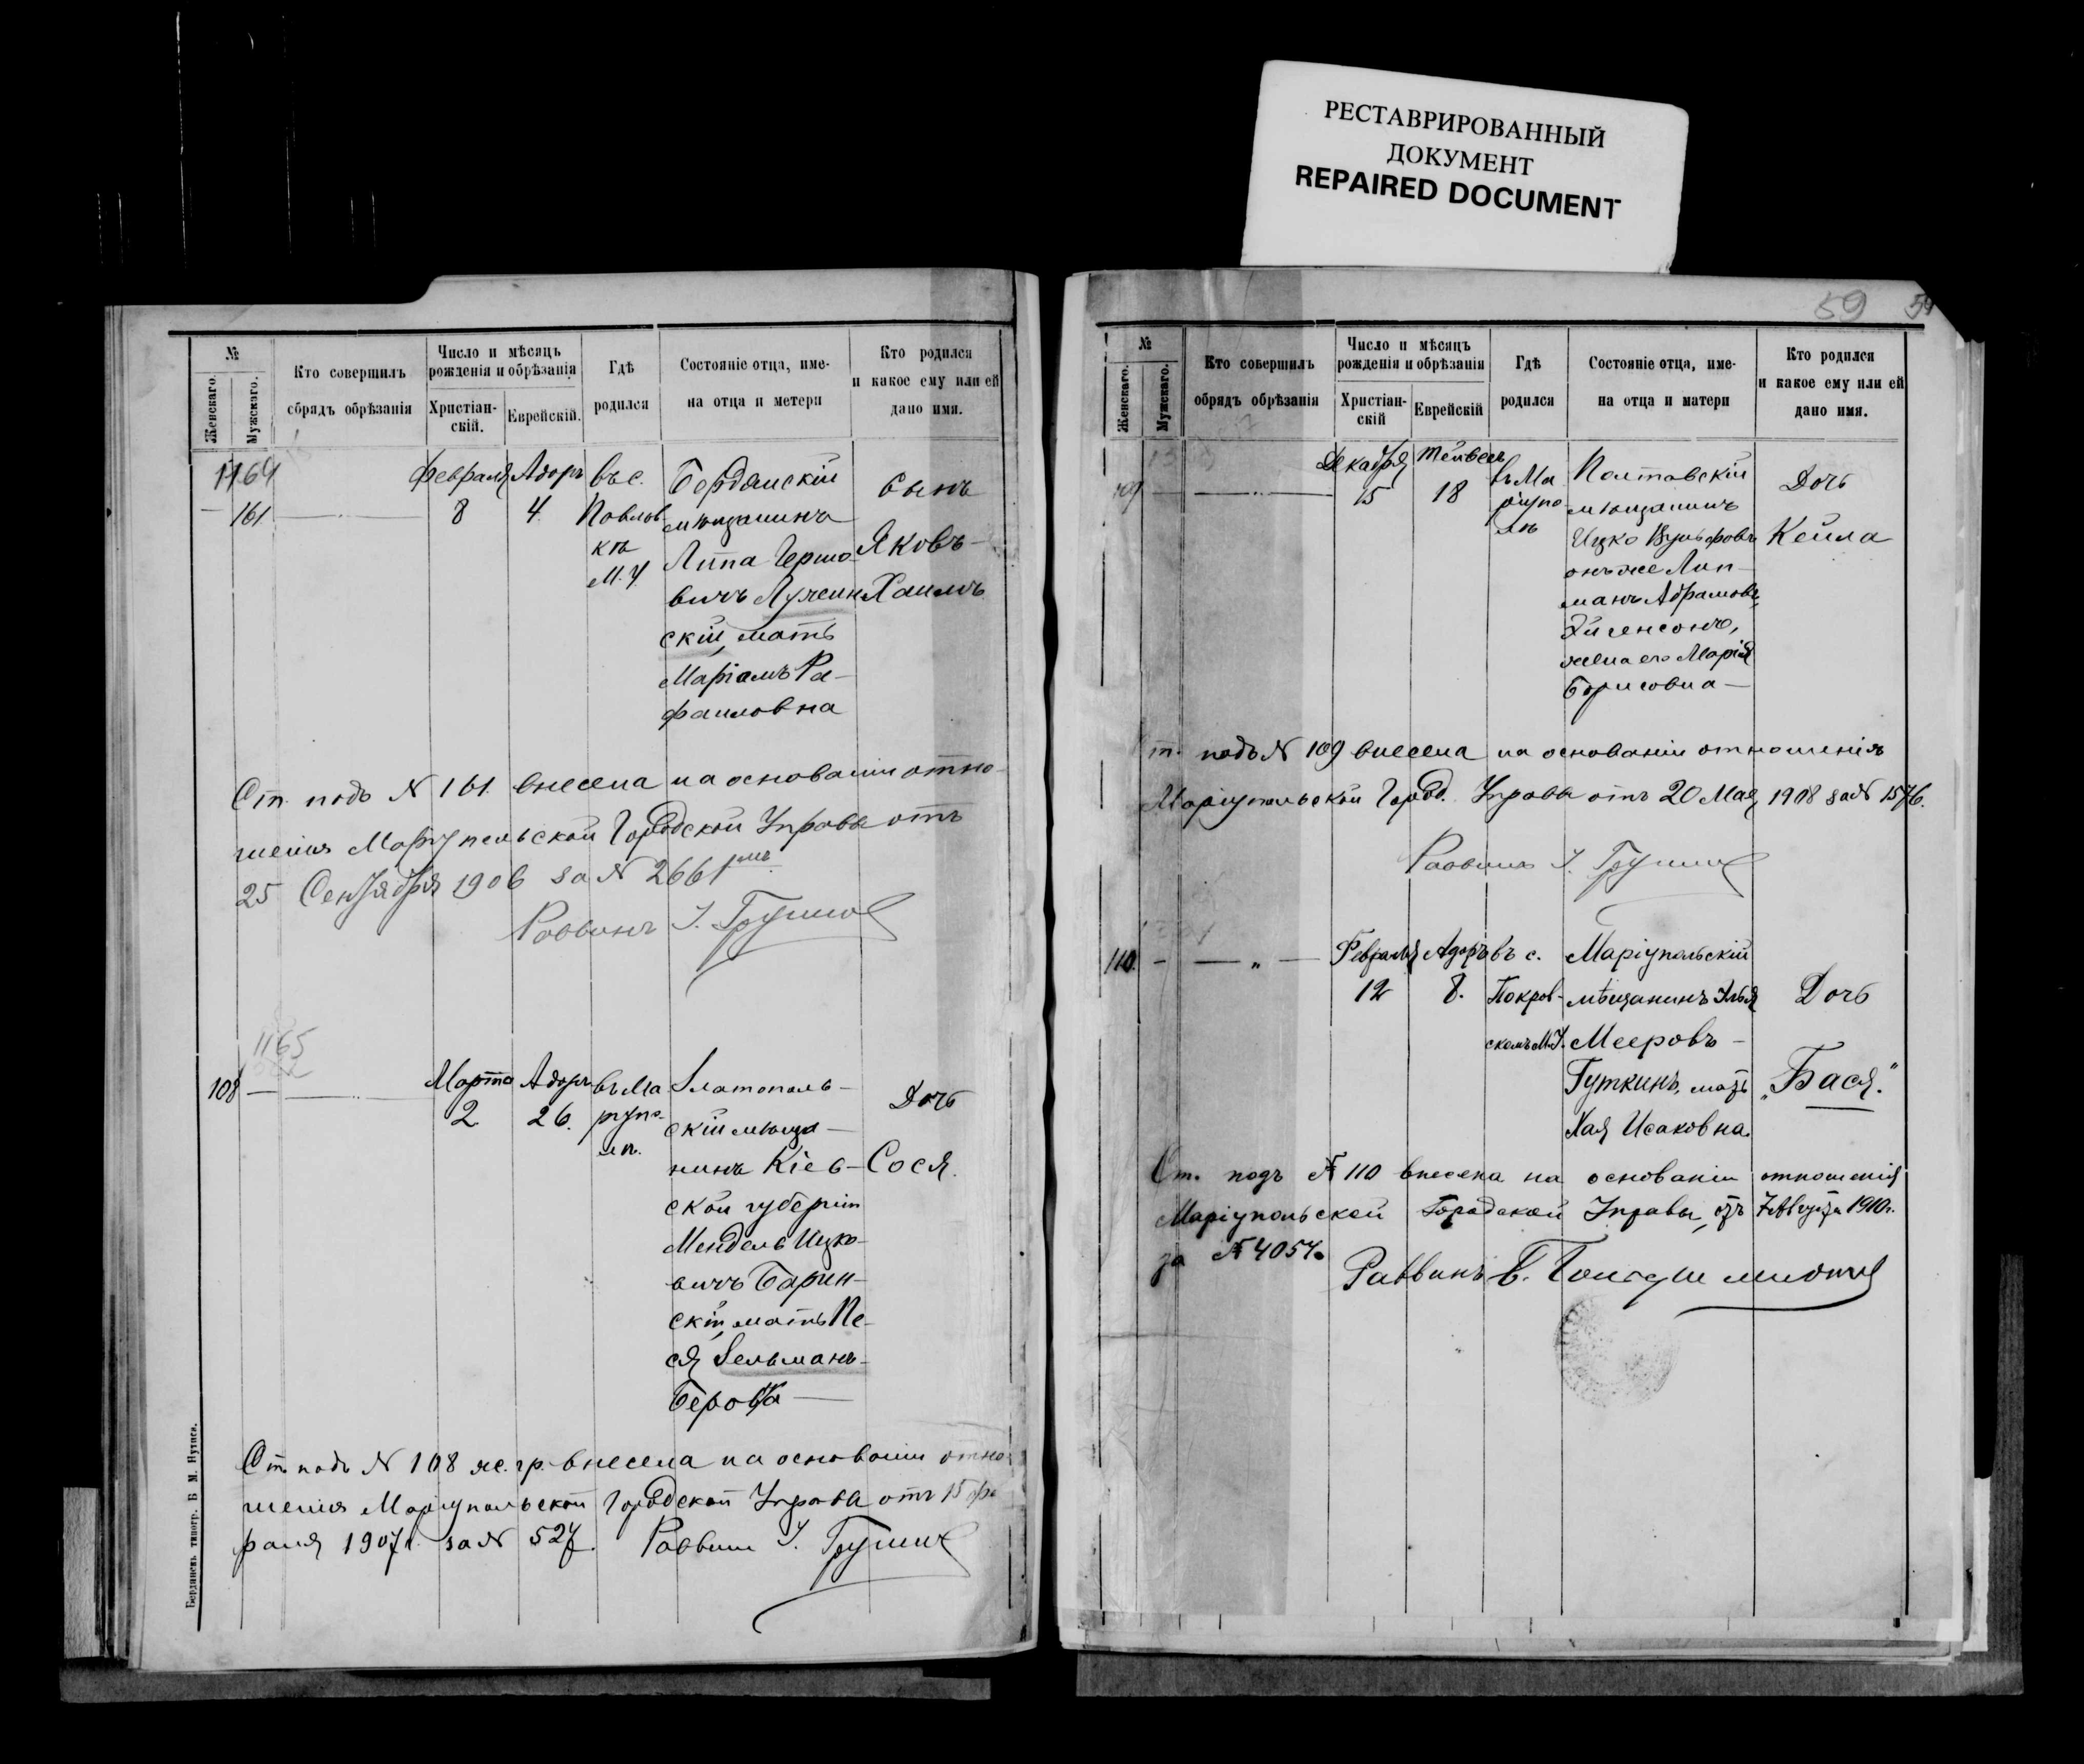 РЕСТАВРИРОВАННЫЙ
ДОКУМЕНТ
REPAIRED DOCUMENT
№
Женскаго.
Мужскаго.
Кто совершилъ
сбрядъ обрѣзанія
Число и мѣсяцъ
рожденія и обрѣзанія
Христіан-
скій.
Еврейскій.
Гдѣ
родился
Состояніе отца, име-
на отца и метери
Кто родился
и какое ему или ей
дано имя.
1164
161
Февраля
8
Адоръ
4
въ с.
Павлов
кѣ
М. У.
Бердянскій
мѣщанинъ
Липа Гершо-
вичъ Лужин
скій, мать
Маріамъ Ра-
фаиловна
Сынъ
Яковъ-
Хаимъ
Ст. подъ № 161 внесена на основаніи отно-
шенія Маріупольской Городской Управы отъ
25 Сентября 1906 за № 2661
Раввинъ
1165
108
Марта
2
Адоръ
26.
въ Ма
ріупо-
лѣ.
Златополь-
скій мѣща-
нинъ Кіев-
ской губерніи
Мендель Ицко-
вичъ Барин-
скій, мать Пе-
ся Зельманъ-
Берова
Дочь
Сося.
Ст. подъ № 108 же. гр. внесена на основаніи отно
шенія Маріупольской Городской Управы отъ 15 фе
раля 1907 г. за № 527.
Раввинъ
Бердянскъ типогр. Б М. Нутиса.
59
№
Женскаго.
Мужскаго.
Кто совершилъ
обрядъ обрѣзанія
Число и мѣсяцъ
рожденія и обрѣзанія
Христіан-
скій
Еврейскій
Гдѣ
родился
Состояніе отца, име-
на отца и матери
Кто родился
и какое ему или ей
дано имя.
109
Декабря
15
Тейвесъ
18
въ Ма
ріупо
лѣ
Полтавскій
мѣщанинъ
Ицко Вульфовъ
онъ же Лип-
манъ Абрамовъ
жена его Марія
Борисовна
Дочь
Кейла
Ст. подъ № 109 внесена на основаніи отношенія
Маріупольской Город. Управы отъ 20 Мая 1908 за № 1576.
Раввинъ
110.
Февраля
12
Адоръ
8.
въ с.
Покров-
скомъ М.У.
Маріупольскій
мѣщанинъ Илья
Мееровъ
Гуткинъ, мать
Хая Исаковна.
Дочь
„Бася."
Ст. подъ № 110 внесена на основаніи отношенія
Маріупольской Городской Управы, отъ 7 Августа 1910 г.
за № 4054.
Раввинъ